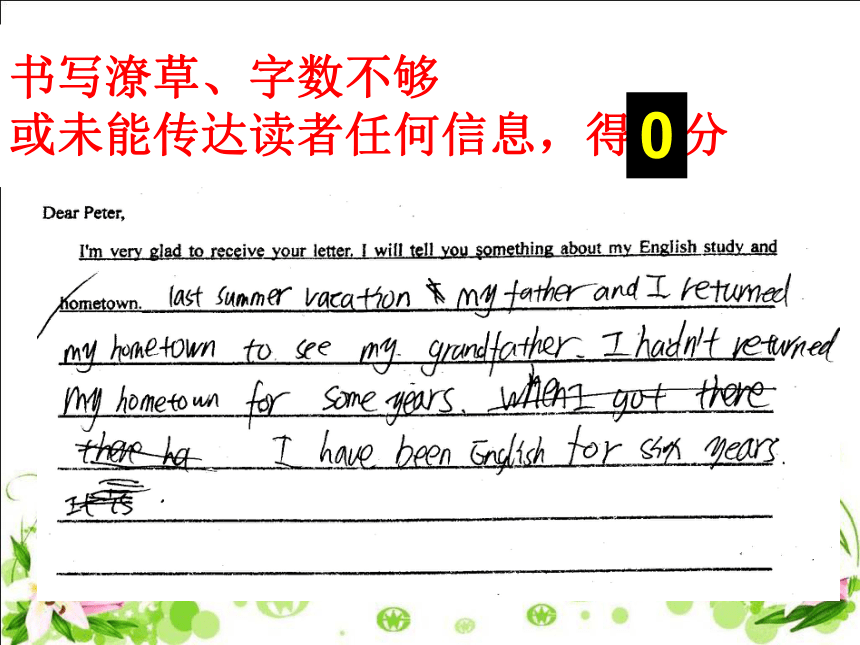 书写潦草、字数不够
或未能传达读者任何信息，得0分
Dear Peter,
I'm very glad to receive your letter. I will tell you something about my English study and
hometown. last summer vacation my father and I returned
my hometown to see my grandfather. I hadn't returned
my hometown for some years. when I got there
there ha I have been English for six years.
It is .